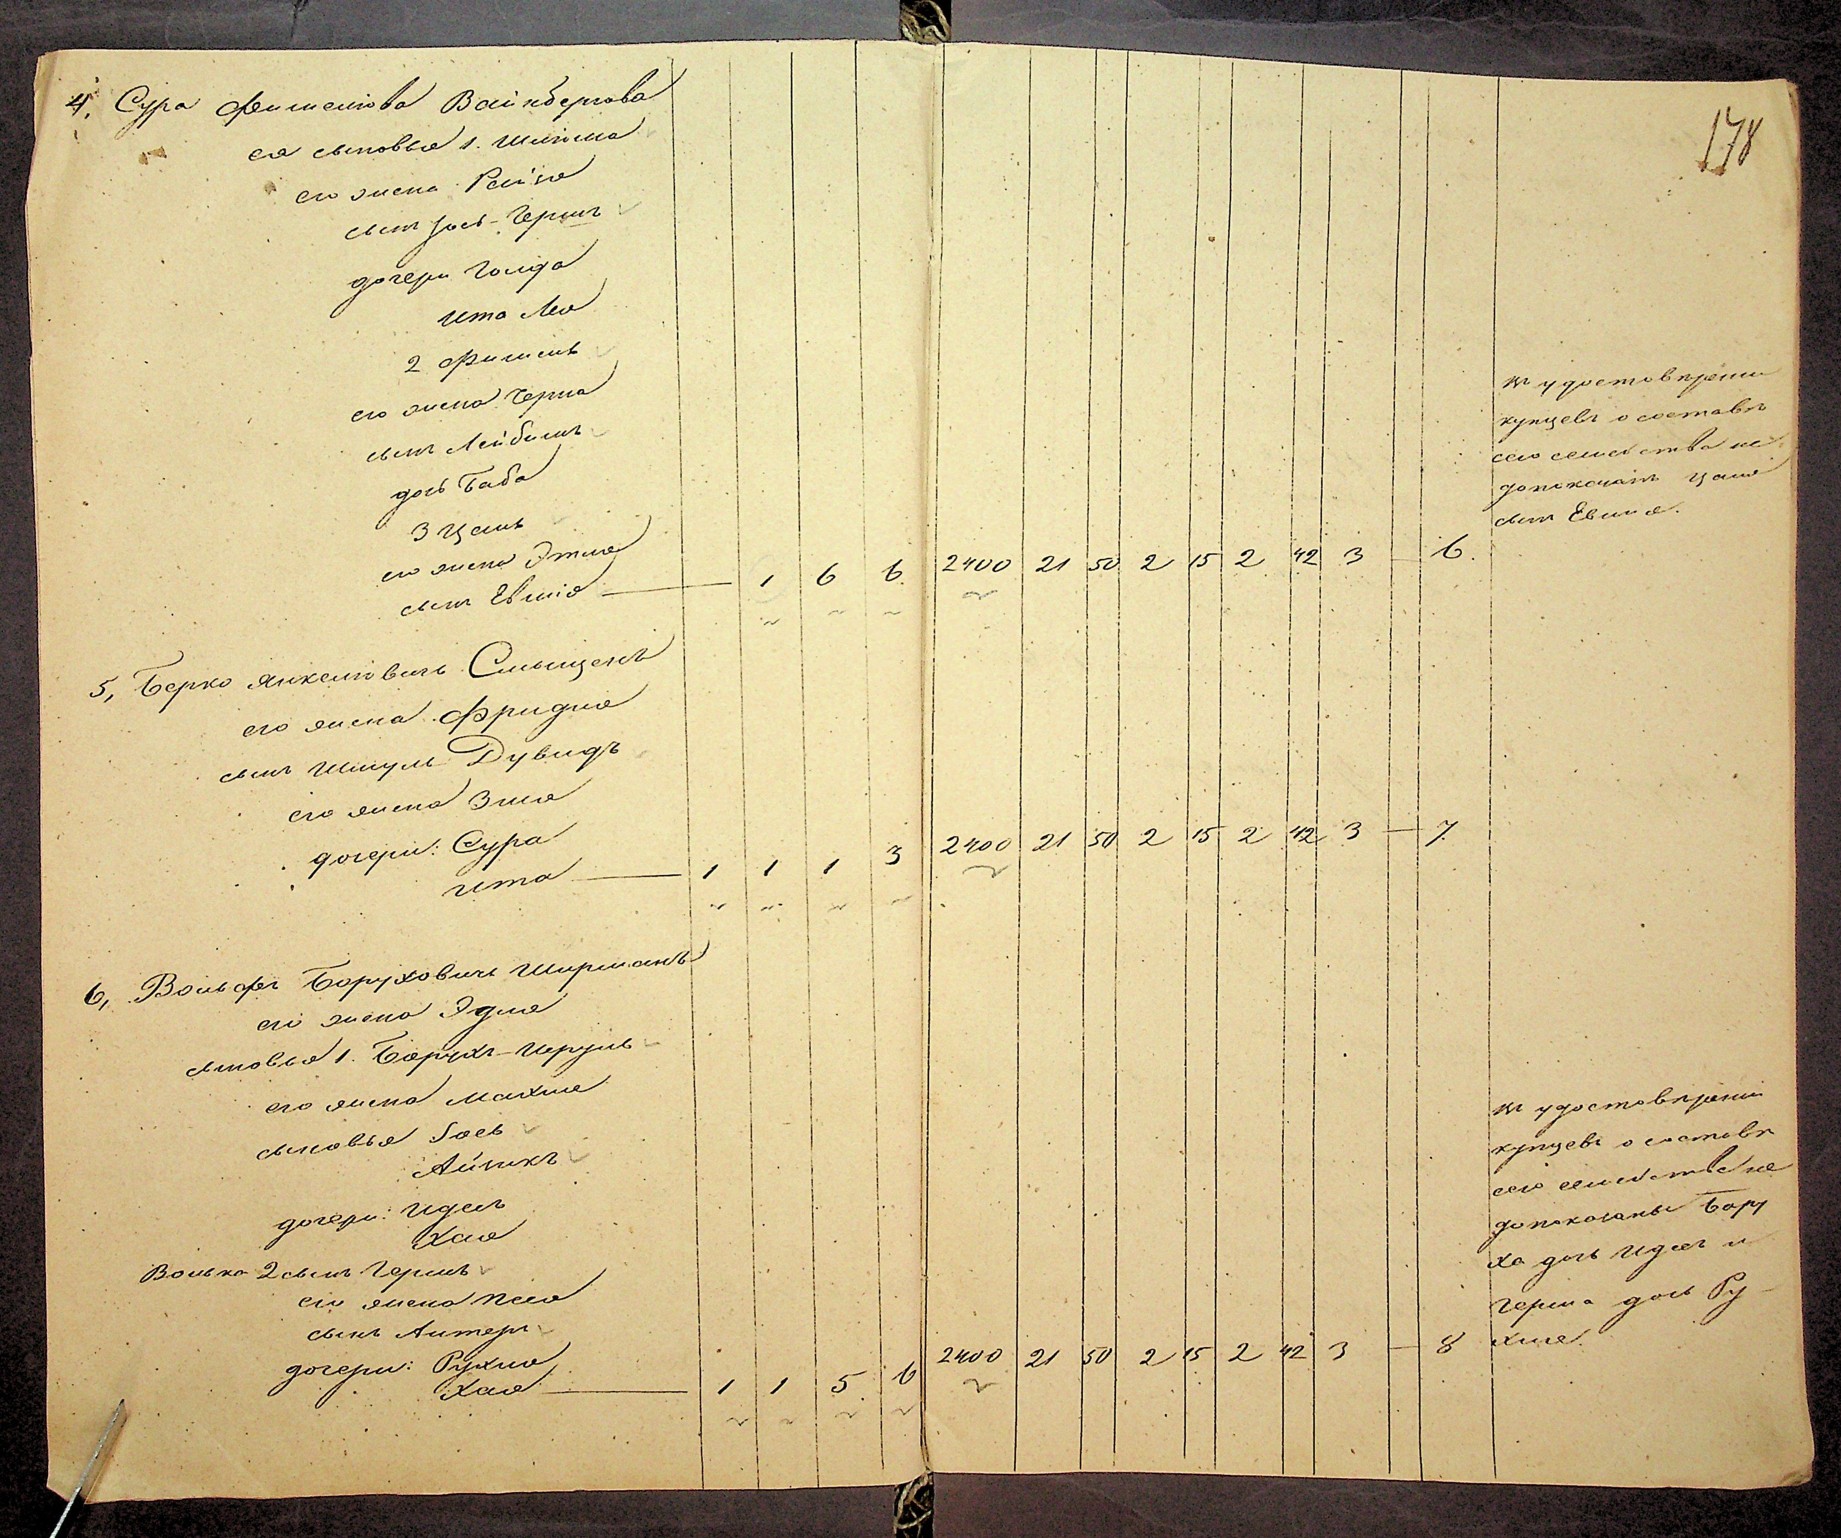 178
4, Сура Фишелiова Вайнбергова
ея сыновья 1. Шлiома
его жена Райзя
сынъ Iось-Гершъ
дочери Голда
Ита Лея
2 Фишель
его жена Черна
сынъ Лейбишъ
дочь Баба
3 Цаль
его жена Этля
сынъ Евшiя — 1 6 6 2400 21 50 2 15 2 42 3 — 6.
въ удостоверенiи
купцевъ о составе
сего семейства не
допоказанъ Цаля
сынъ Евшiя.
5, Берко Янкелiовичъ
его жена Фридля
сынъ Шмуль Дувидъ
его жена Зися
дочери: Сура
Ита — 1 1 1 3 2400 21 50 2 15 2 42 3 — 7.
6, Вольфъ Боруховичъ Ширманъ
его жена Эдля
сыновья 1. Борухъ-
его жена Малля
сыновья Iось
Айзикъ
дочери: Идесъ
Хая
Волька 2 сынъ Гершъ
его жена Песя
сынъ Алтеръ
дочери: Рухля
Хая — 1 1 5 6 2400 21 50 2 15 2 42 3 — 8
въ удостоверенiи
купцевъ о составе
сего семейства не
допоказаны Бору
ха дочь Идесъ и
Герша дочь Ру-
хля.